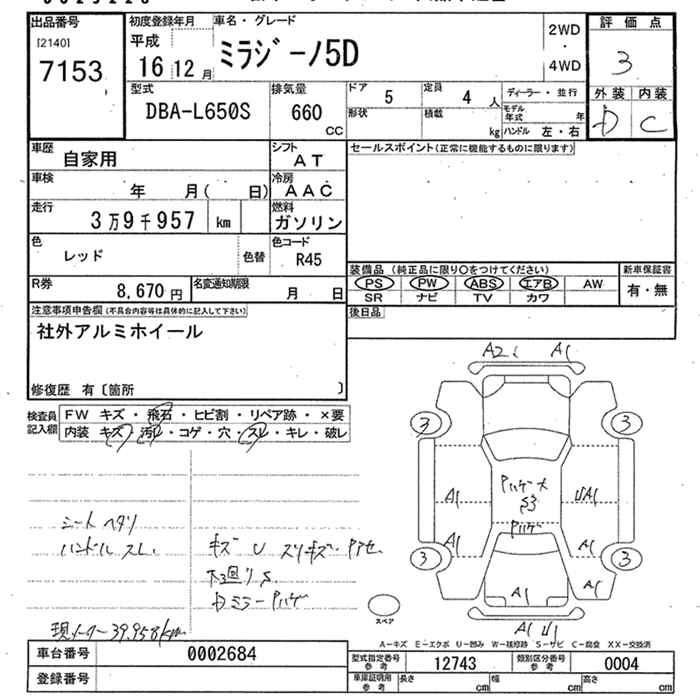 出品番号
[2140]
7153
初度登録年月
平成
16 12 月
車名・グレード
ミラジーノ5D
2WD
・
4WD
評価点
3
外装 内装
D C
型式
DBA-L650S
排気量
660
CC
ドア 5
定員 4 人
形状
積載 kg
ディーラー・並行
モデル年式 年
ハンドル 左・右
車歴
自家用
シフト
AT
車検
年 月( 日)
冷房
AAC
走行
3万9千957 km
燃料
ガソリン
色
レッド
色替
色コード
R45
R券
8,670 円
名変通知期限
月 日
セールスポイント(正常に機能するものに限ります)
装備品 (純正品に限り○をつけてください)
PS PW ABS エアB AW
SR ナビ TV カワ
新車保証書
有・無
後日品
注意事項申告欄(不具合内容等は具体的に記入して下さい)
社外アルミホイール
修復歴 有〔箇所 〕
検査員記入欄
FW キズ・飛石・ヒビ割・リペア跡・×要
内装 キズ・汚レ・コゲ・穴・スレ・キレ・破レ
シートヘタリ
ハンドルスレ
キズ U スリキズ・Pアセ
下回りS
DミラーPハゲ
現メーター39.958km
A2 A1
3 3
Pハゲ大
S3
Pハゲ
A1 UA1
A1 A1
3 3
A1 A1
A1 U1
スペア
A-キズ E-エクボ U-凹み W-補修跡 S-サビ C-腐食 XX-交換済
車台番号
0002684
登録番号
型式指定番号
参考
12743
類別区分番号
参考
0004
車庫証明用
参考
長さ cm
幅 cm
高さ cm